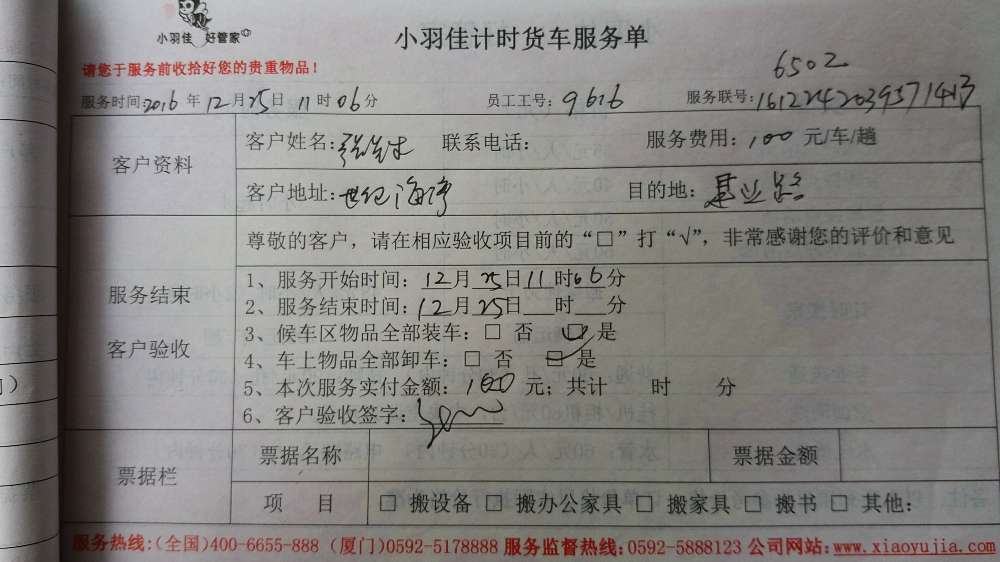 小羽佳 好管家
小羽佳计时货车服务单
请您于服务前收拾好您的贵重物品！
6502
服务时间:2016年12月25日11时06分 员工工号: 9616 服务联号:
客户资料
客户姓名: 联系电话: 服务费用: 100 元/车/趟
客户地址: 世纪海湾 目的地:
尊敬的客户，请在相应验收项目前的“□”打“√”，非常感谢您的评价和意见
服务结束
客户验收
1、服务开始时间: 12月25日11时06分
2、服务结束时间: 12月25日___时___分
3、候车区物品全部装车: □ 否 ☑ 是
4、车上物品全部卸车: □ 否 ☑ 是
5、本次服务实付金额: 100 元; 共计 时 分
6、客户验收签字:
票据栏
票据名称 票据金额
项 目 □ 搬设备 □ 搬办公家具 □ 搬家具 □ 搬书 □ 其他:
服务热线:(全国)400-6655-888 (厦门)0592-5178888 服务监督热线:0592-5888123 公司网站:www.xiaoyujia.com